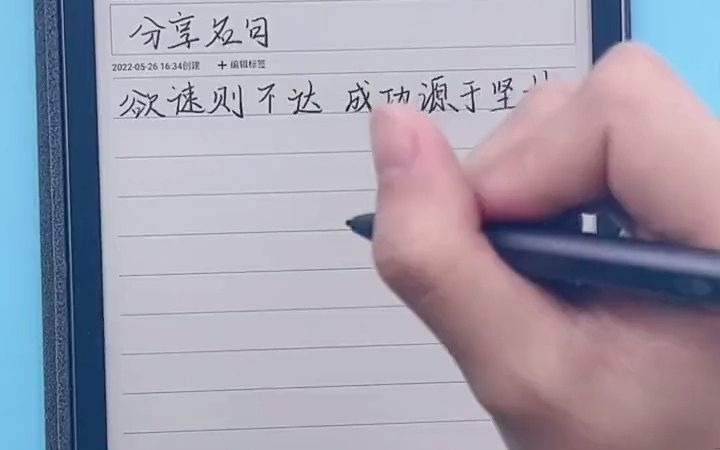 分享名句
2022-05-26 16:34创建 + 编辑标签
欲速则不达 成功源于坚